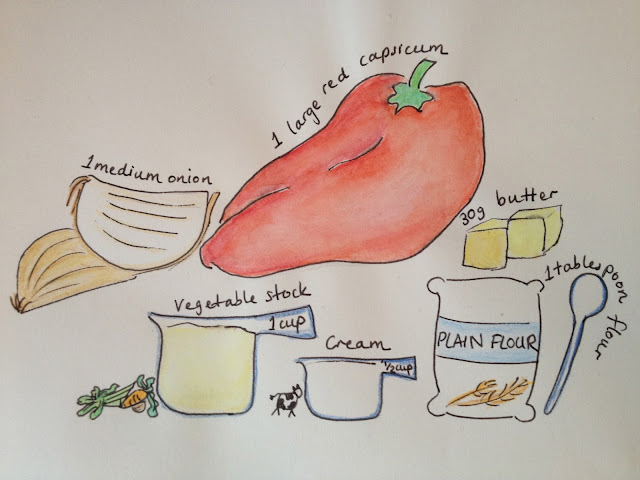 1 large red capsicum
1 medium onion
30g butter
1 tablespoon flour
vegetable stock
1 cup
Cream
1/2 cup
PLAIN FLOUR